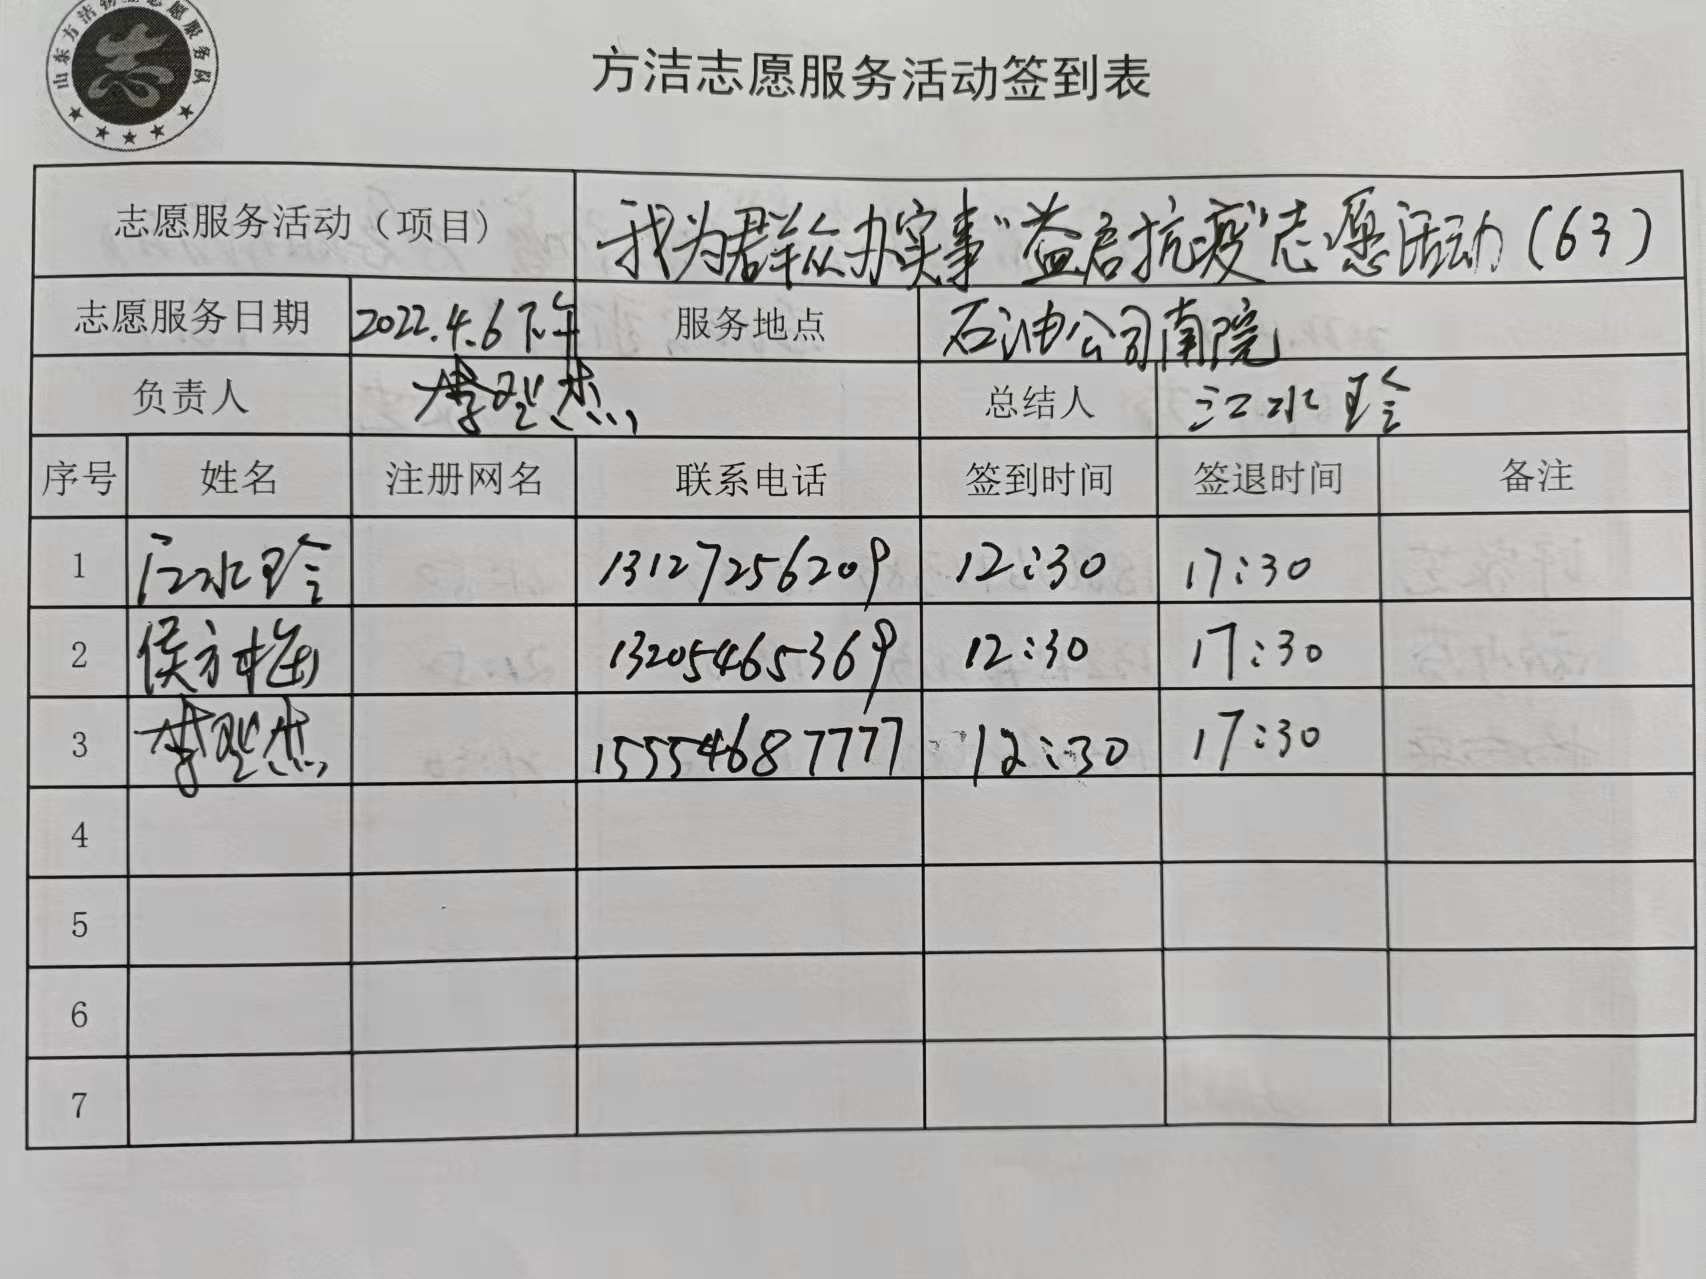 山东方洁物业志愿服务队
方洁志愿服务活动签到表
志愿服务活动（项目） 我为群众办实事"益启抗疫"志愿活动(63)
志愿服务日期 2022.4.6下午 服务地点 石油公司南院
负责人 李卫杰 总结人 江水玲
序号 姓名 注册网名 联系电话 签到时间 签退时间 备注
1 江水玲 13127256209 12:30 17:30
2 侯方梅 13205465369 12:30 17:30
3 李 杰 15554687777 12:30 17:30
4
5
6
7